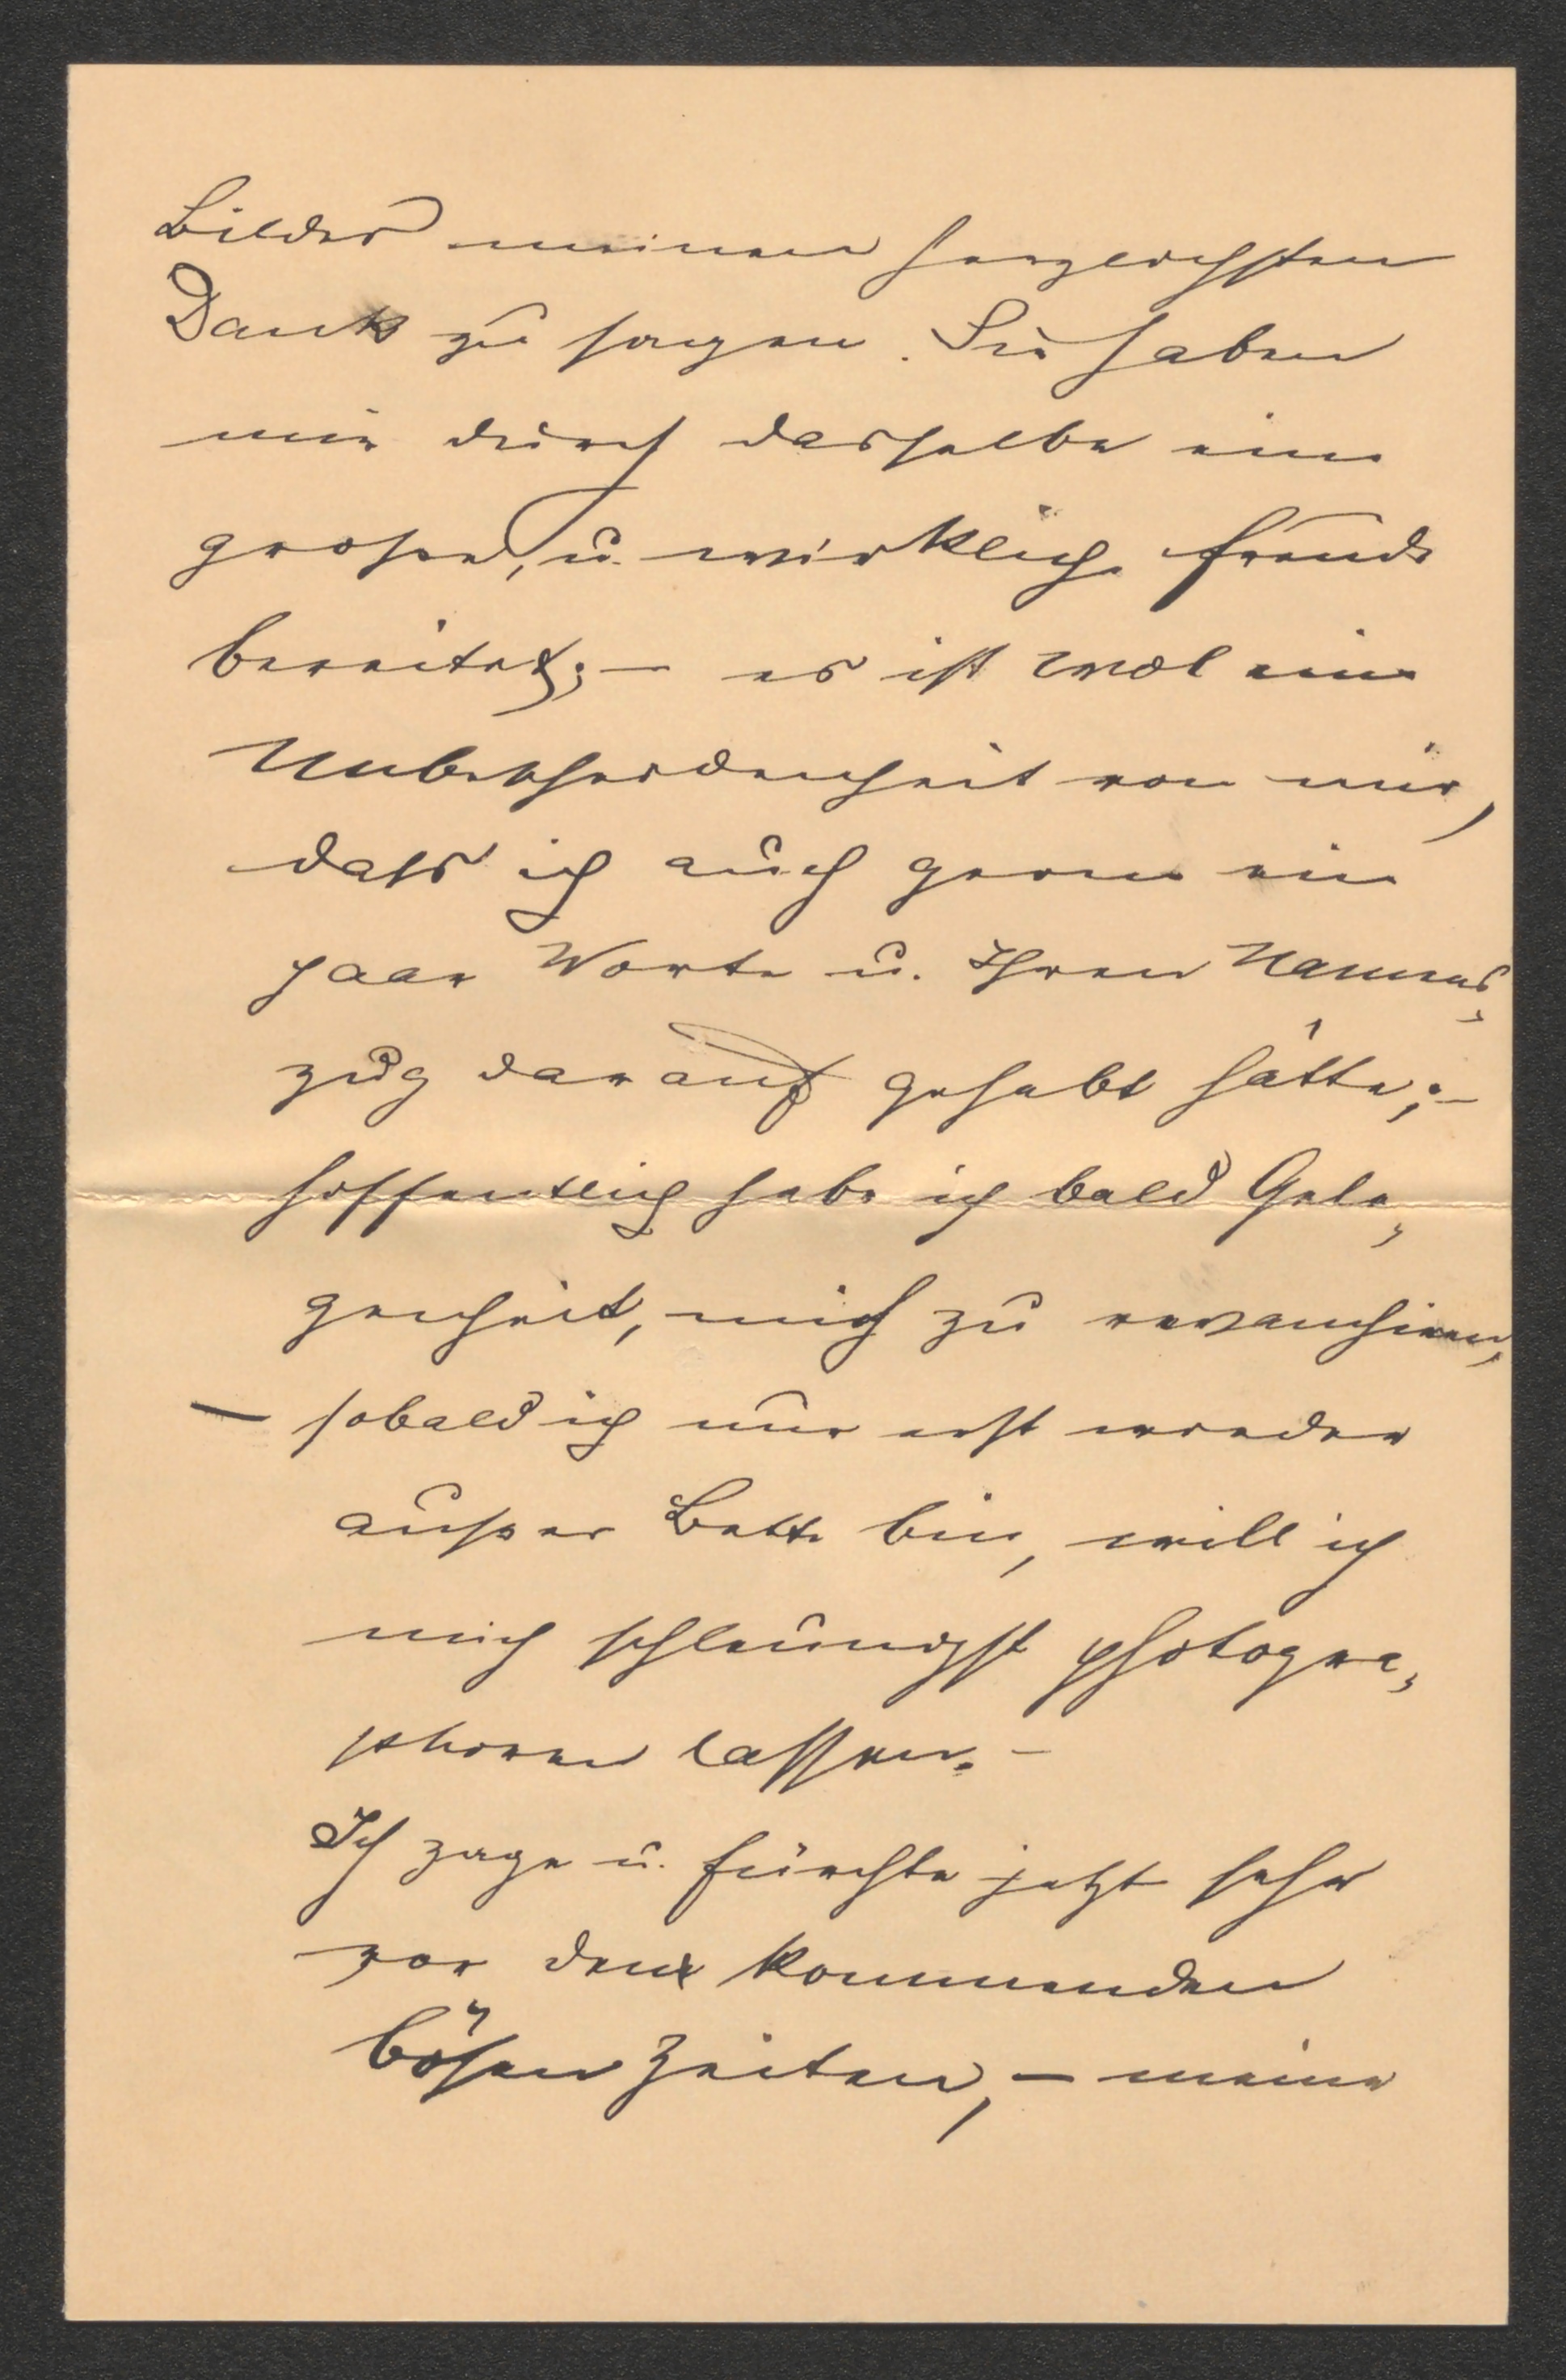 Bildes meinen herzlichsten
Dank zu sagen. Sie haben
mir durch dasselbe eine
große, u. wirkliche Freude
bereitet; – es ist wol eine
Unbescheidenheit von mir,
dass ich auch gerne ein
paar Worte u. Ihren Namens-
zug darauf gehabt hätte; –
hoffentlich habe ich bald Gele-
genheit, mich zu revanchiren,
– sobald ich nur erst wieder
außer Bette bin, will ich
mich schleunigst photogra-
phiren lassen. –
Ich zage u. fürchte jetzt sehr
vor den kommenden
bösen Zeiten, – meine